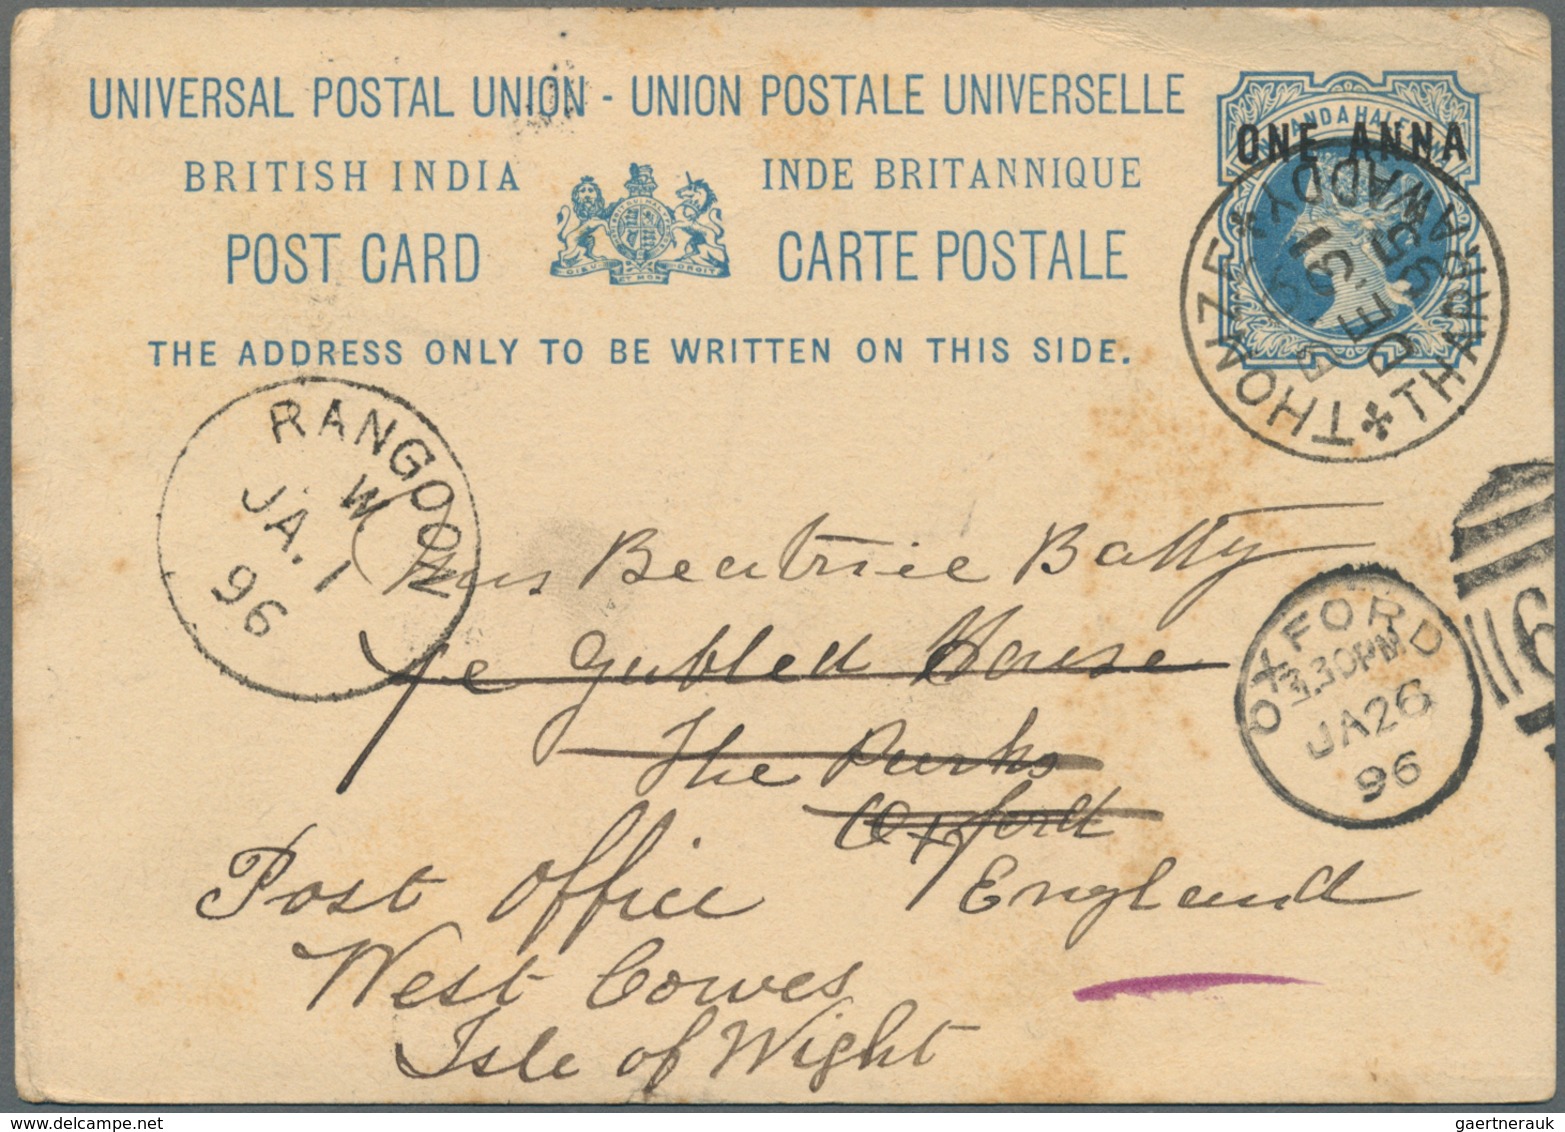 UNIVERSAL POSTAL UNION - UNION POSTALE UNIVERSELLE
BRITISH INDIA INDE BRITANNIQUE
POST CARD CARTE POSTALE
THE ADDRESS ONLY TO BE WRITTEN ON THIS SIDE.
ONE ANNA
THONZE THARRAWADDY
DE.31
95
RANGOON
W
JA.1
96
Miss Beatrice Batty
Gabled House
The Parks
Oxford
England
Post Office
West Cowes
Isle of Wight
OXFORD
3.30PM
JA26
96
6
gaertnerauk